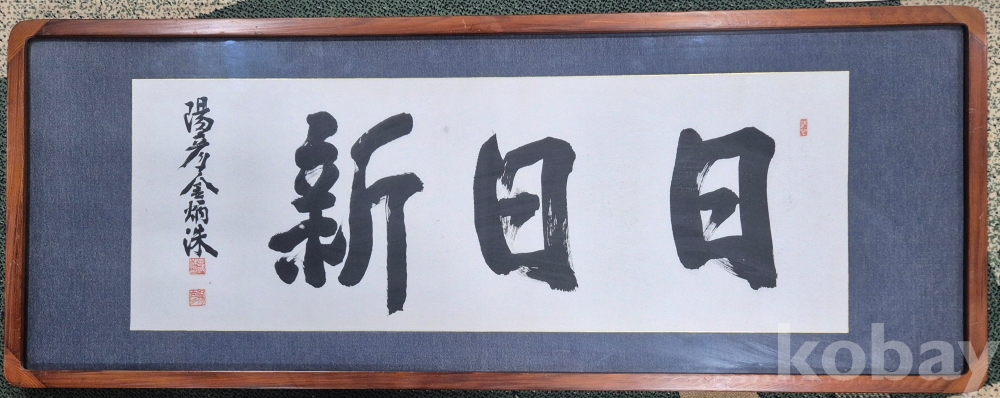 日日新
陽彦金炳洙
kobay